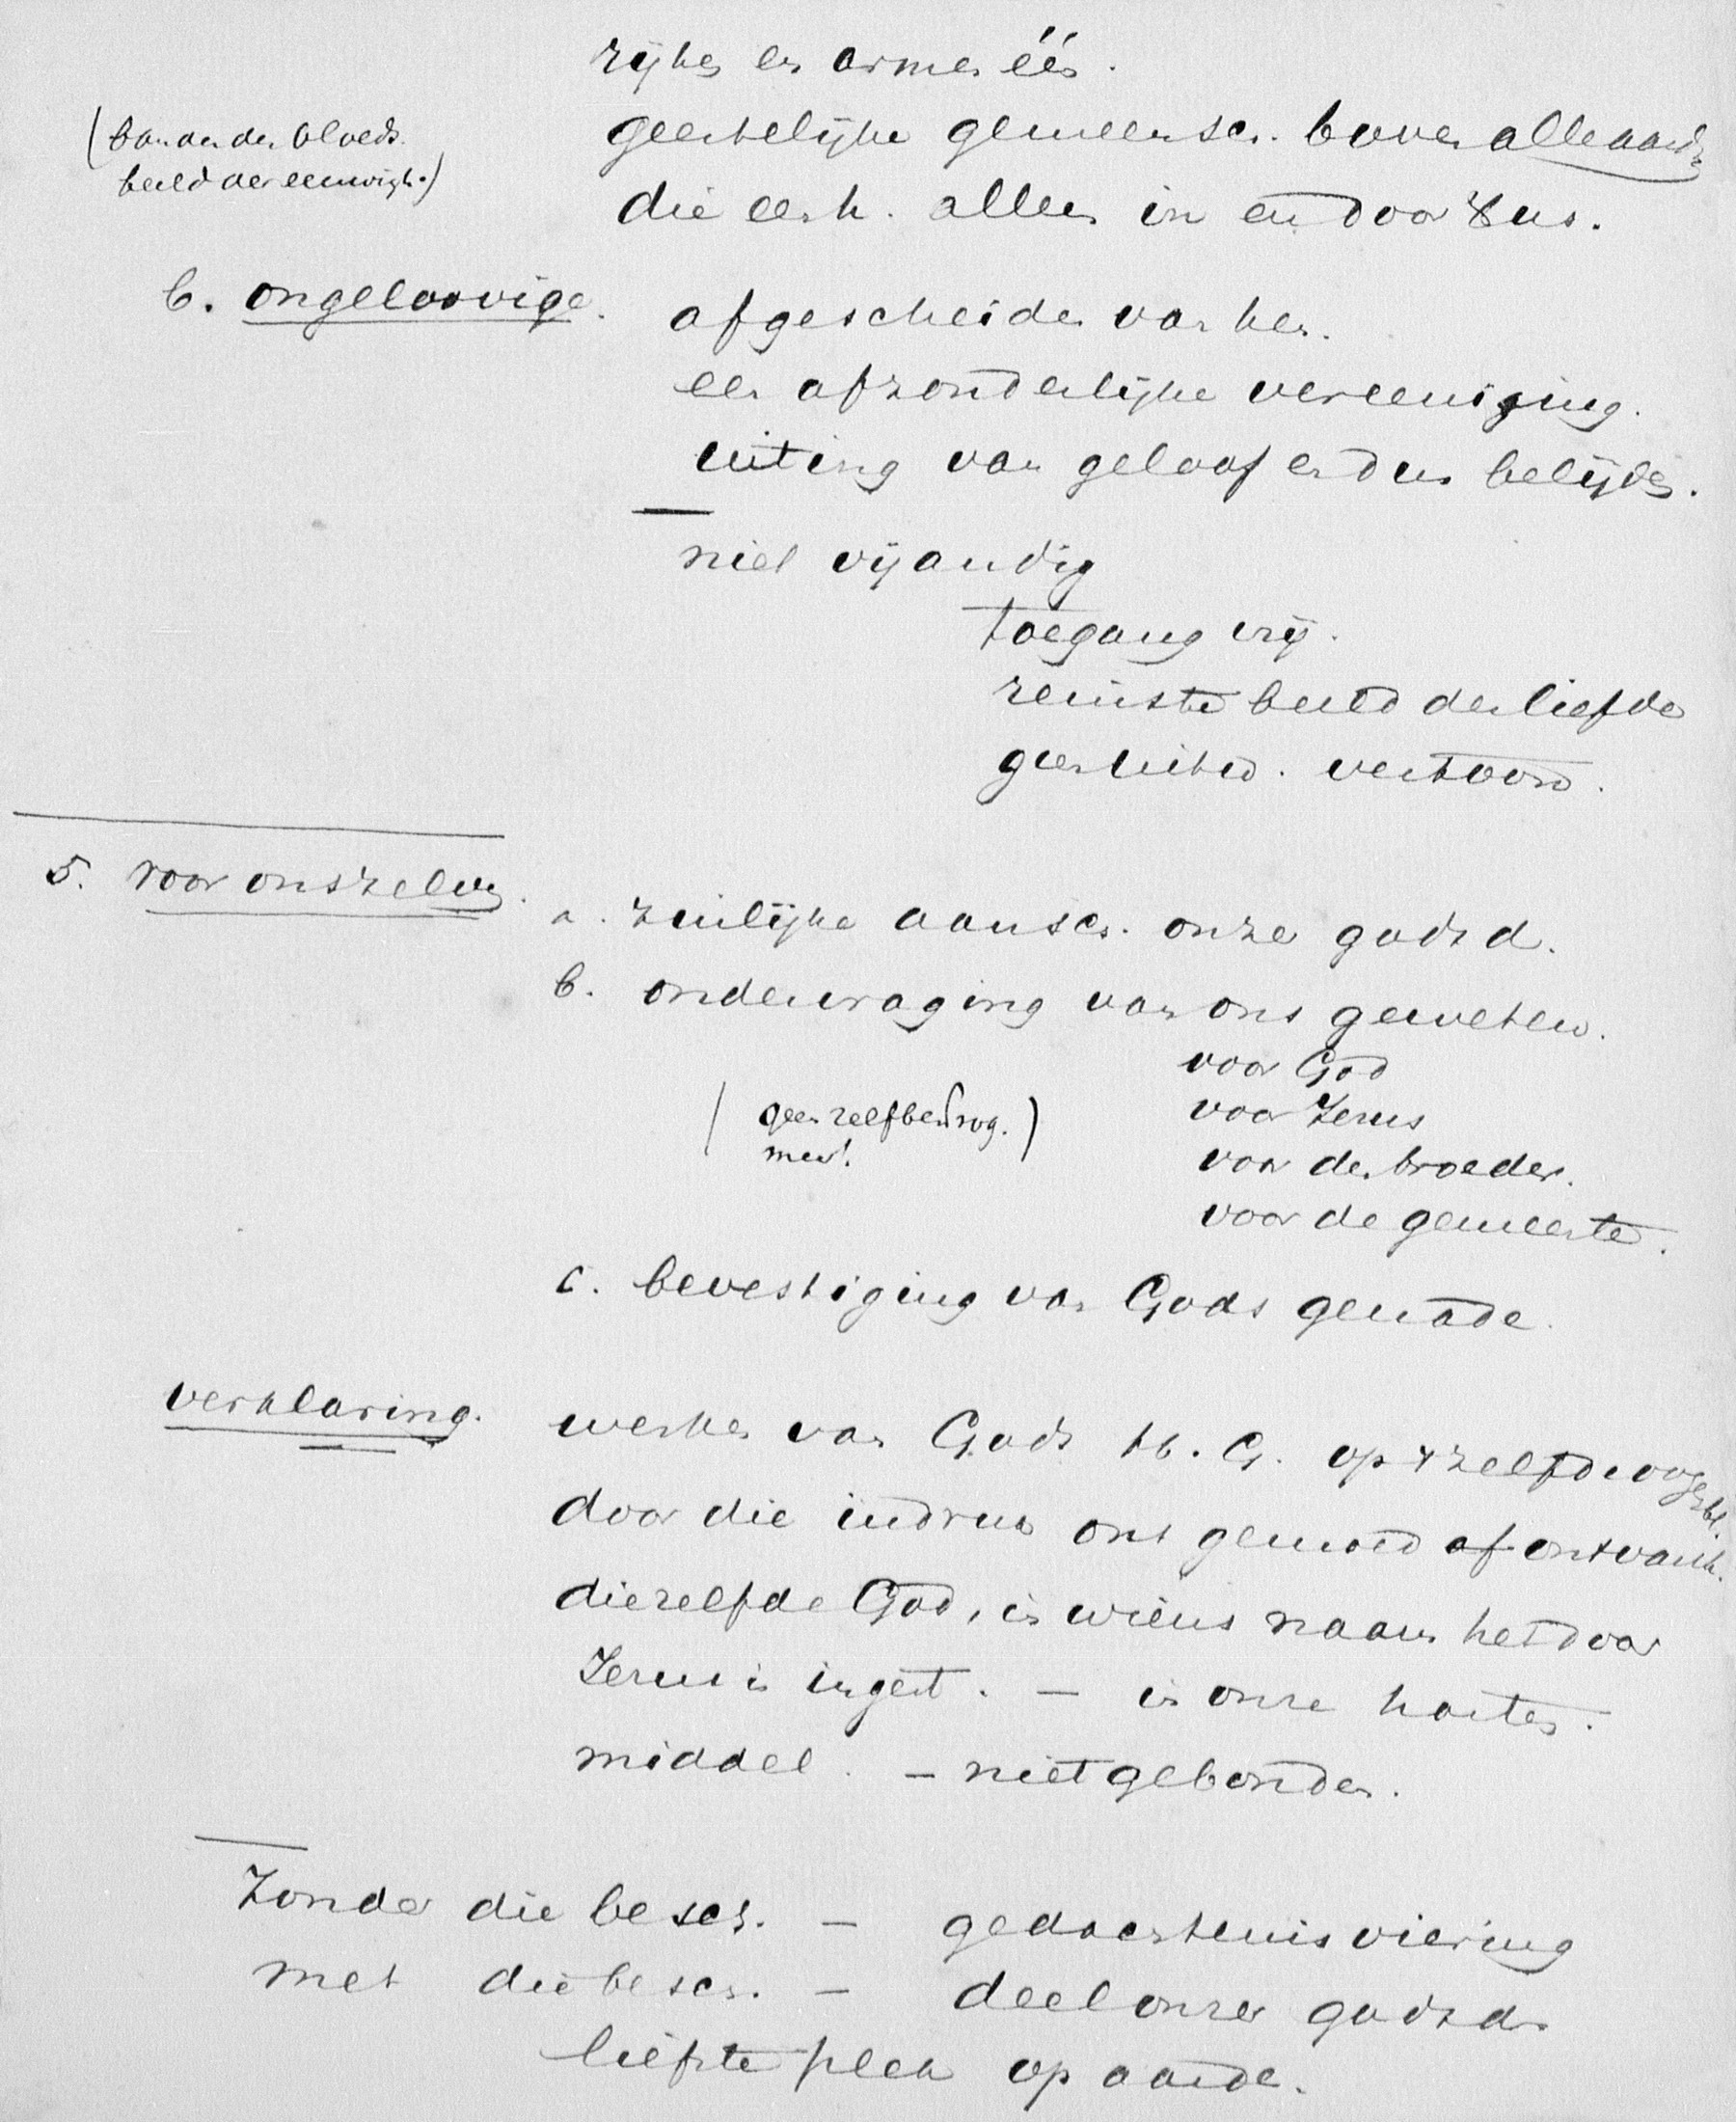 rijken en armen één.
(banden des bloeds.
beeld der eeuwigh.)
geestelijke gemeensch. boven alle aards
die eenh. alleen in en door
b. ongeloovige. afgescheiden van hen.
een afzonderlijke vereeniging.
uiting van geloof en dus belijden.
niet vijandig
toegang vrij.
reinste beeld der liefde
geen vertoon.
5. voor onszelven.
a. zinlijke aansch. onzer godsd.
b. ondervraging van ons geweten.
voor God
voor Jezus
(geen zelfbedrog.
meer.)
voor den broeder.
voor de gemeente.
c. bevestiging van Gods genade.
verklaring. werken van Gods H. G. op 't zelfde oogenbl.
door die indruk ons gemoed of ontvank.
diezelfde God, in wiens naam het door
Jezus is ingest. — in onze harten.
middel. — niet gebonden.
Zonder die besch. — gedachtenisviering
met die besch. — deel onzer godsd.
liefste plek op aarde.